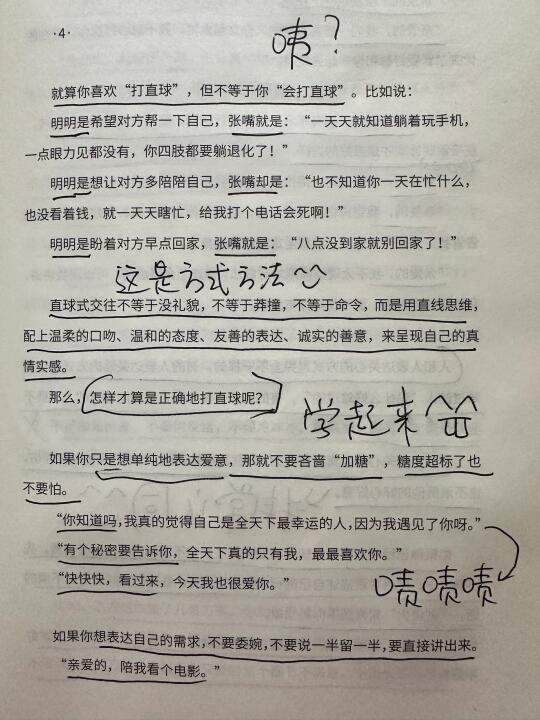 ·4·
咦?
就算你喜欢“打直球”,但不等于你“会打直球”。比如说:
明明是希望对方帮一下自己,张嘴就是:“一天天就知道躺着玩手机,
一点眼力见都没有,你四肢都要躺退化了!”
明明是想让对方多陪陪自己,张嘴却是:“也不知道你一天在忙什么,
也没看着钱,就一天天瞎忙,给我打个电话会死啊!”
明明是盼着对方早点回家,张嘴就是:“八点没到家就别回家了!”
这是方式方法
直球式交往不等于没礼貌,不等于莽撞,不等于命令,而是用直线思维,
配上温柔的口吻、温和的态度、友善的表达、诚实的善意,来呈现自己的真
情实感。
那么,怎样才算是正确地打直球呢?
学起来
如果你只是想单纯地表达爱意,那就不要吝啬“加糖”,糖度超标了也
不要怕。
“你知道吗,我真的觉得自己是全天下最幸运的人,因为我遇见了你呀。”
“有个秘密要告诉你,全天下真的只有我,最最喜欢你。”
“快快快,看过来,今天我也很爱你。”
啧啧啧
如果你想表达自己的需求,不要委婉,不要说一半留一半,要直接讲出来。
“亲爱的,陪我看个电影。”